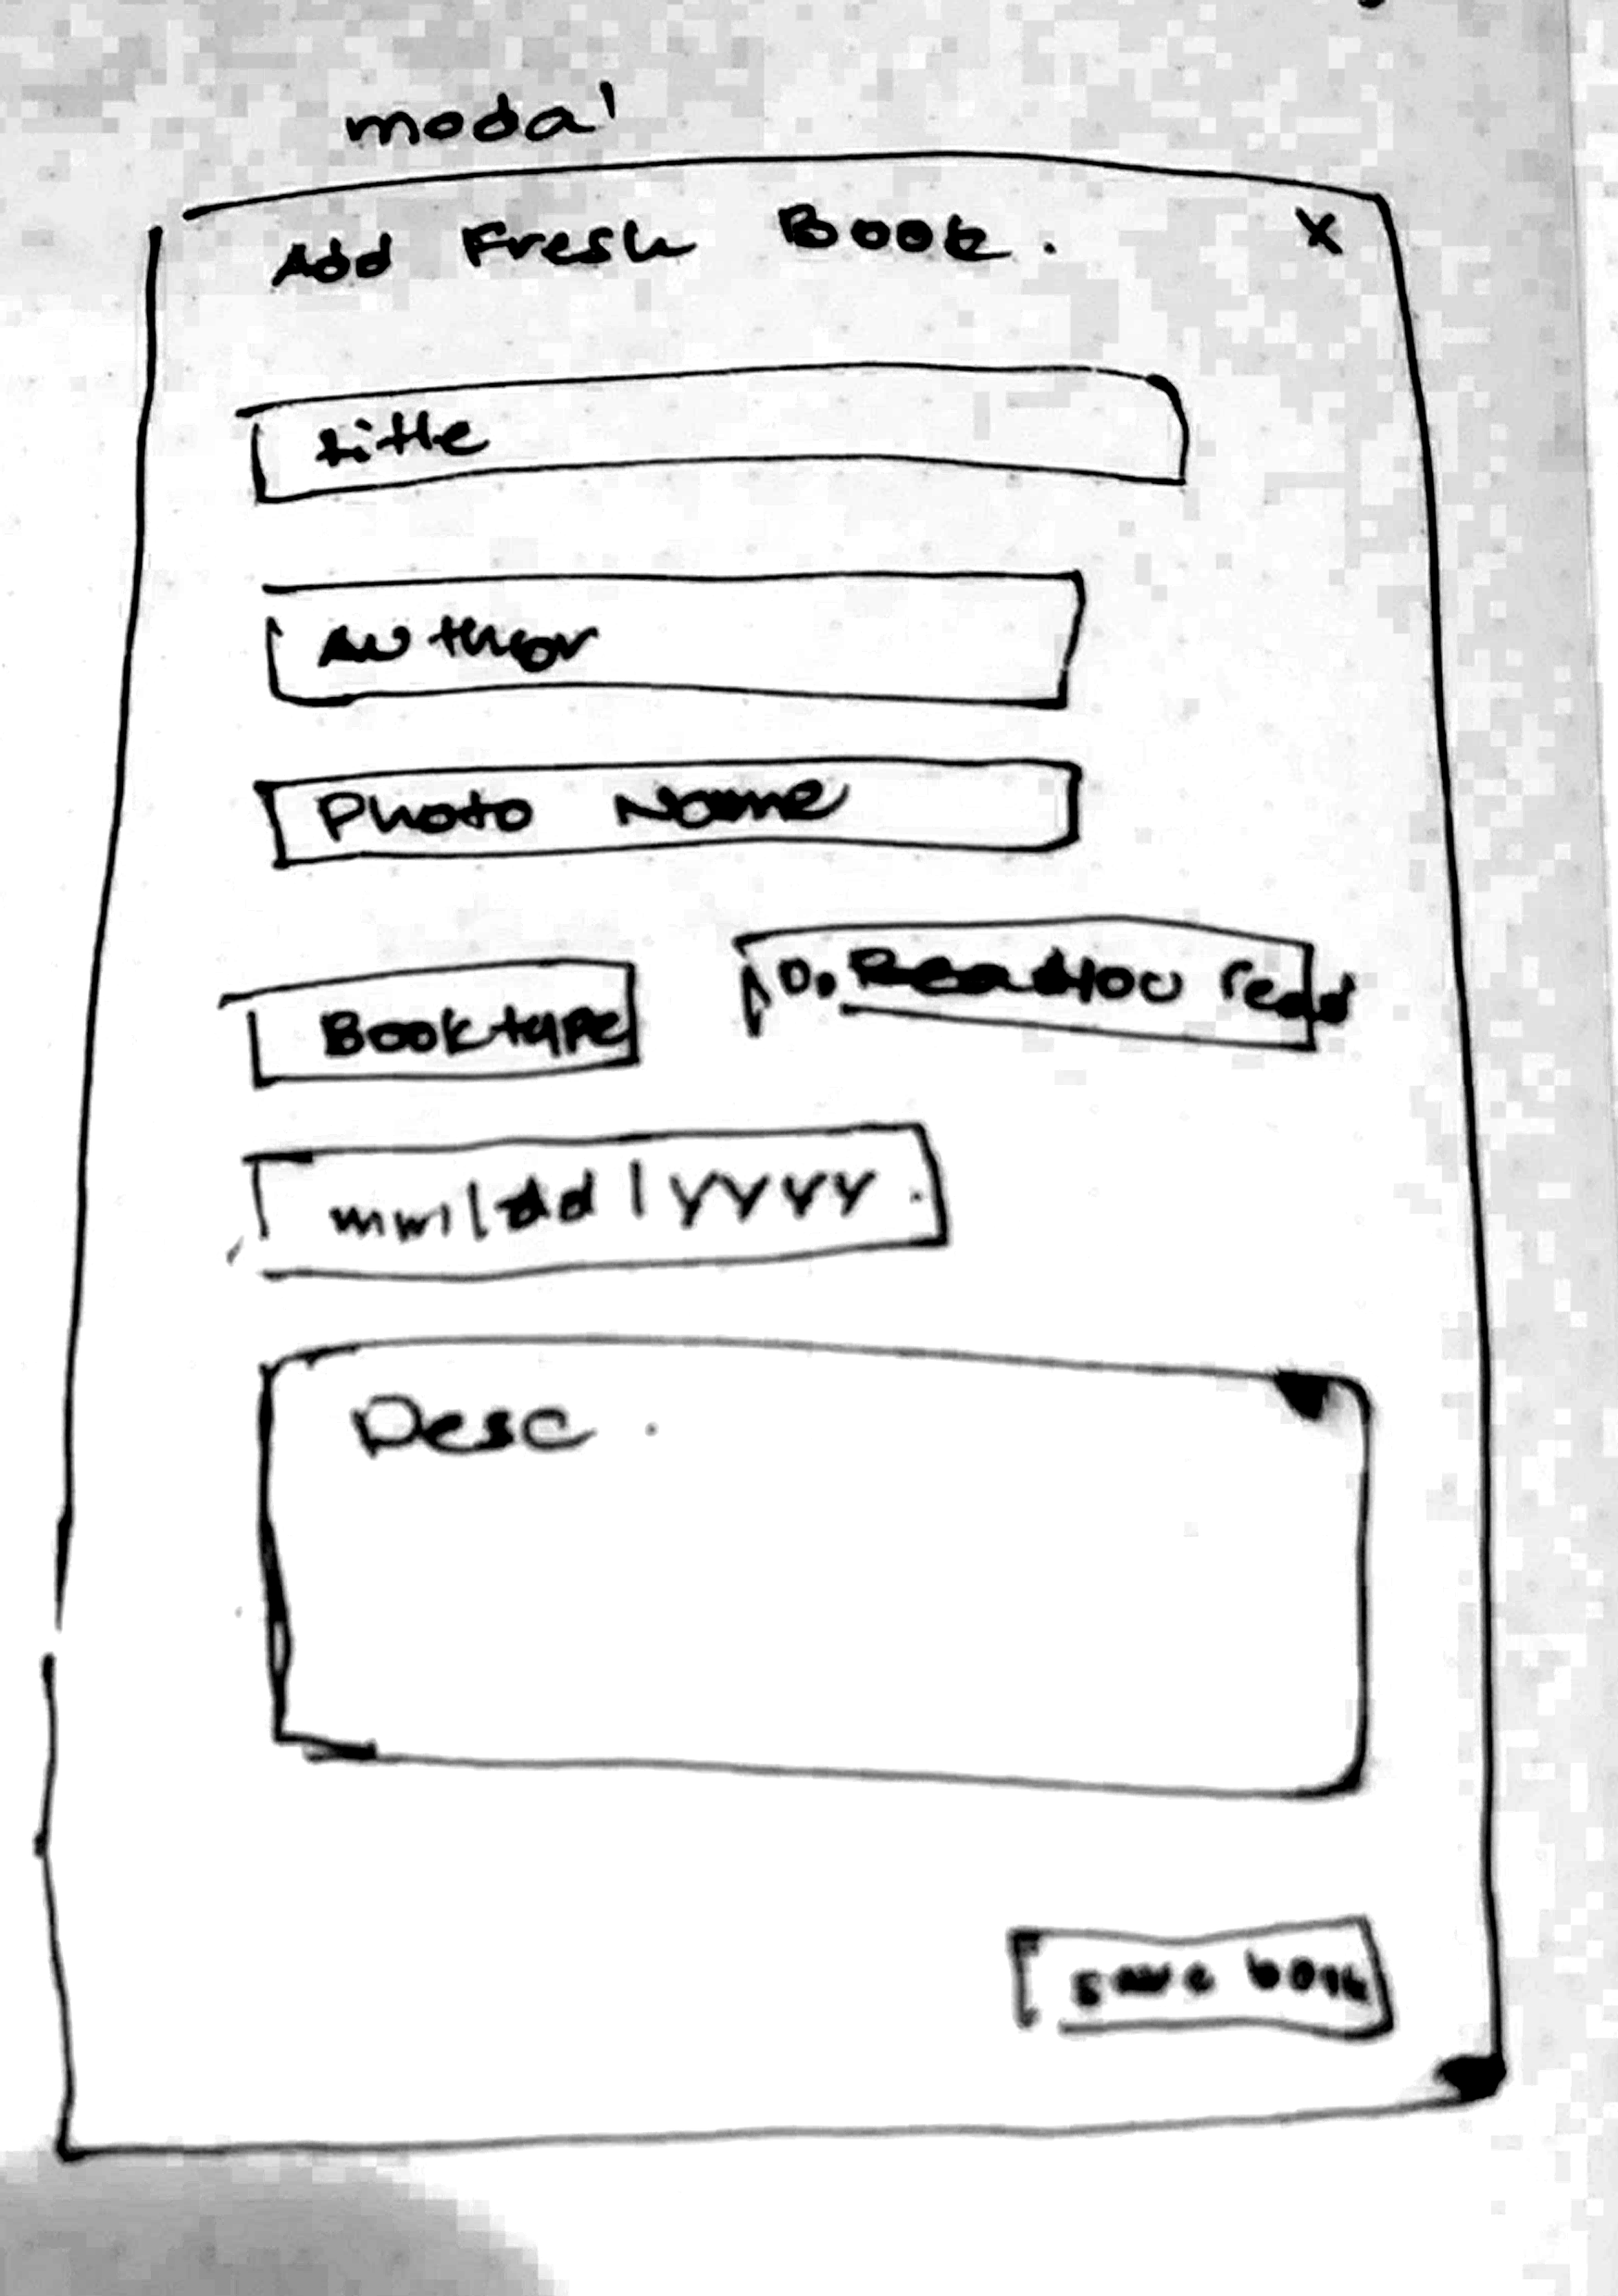 modal
Add Fresh Book. X
title
Author
Photo Name
Book type Do You read
mm/dd/yyyy
Desc.
save book